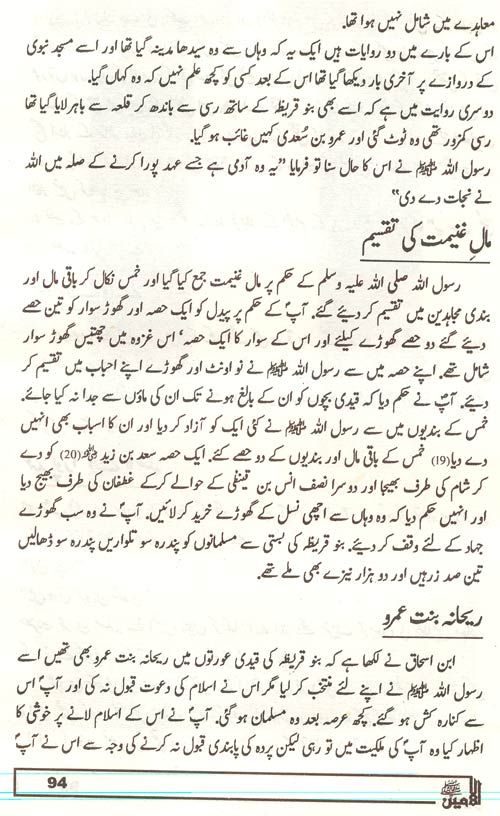 معاہدے میں شامل نہیں ہوا تھا۔
اس کے بارے میں دو روایات ہیں ایک یہ کہ وہاں سے وہ سیدھا مدینہ گیا تھا اور اسے مسجد نبوی
کے دروازے پر آخری بار دیکھا گیا تھا اس کے بعد کسی کو کچھ علم نہیں کہ وہ کہاں گیا۔
دوسری روایت میں ہے کہ اسے بھی بنو قریظہ کے ساتھ رسی سے باندھ کر قلعہ سے باہر لایا گیا تھا
رسی کمزور تھی وہ ٹوٹ گئی اور عمرو بن سُعدی کہیں غائب ہو گیا۔
رسول اللہ ﷺ نے اس کا حال سنا تو فرمایا ”یہ وہ آدمی ہے جسے عہد پورا کرنے کے صلہ میں اللہ
نے نجات دے دی“
مالِ غنیمت کی تقسیم
رسول اللہ صلی اللہ علیہ وسلم کے حکم پر مال غنیمت جمع کیا گیا اور خمس نکال کر باقی مال اور
بندی مجاہدین میں تقسیم کر دیئے گئے۔ آپؐ کے حکم پر پیدل کو ایک حصہ اور گھوڑ سوار کو تین حصے
دیئے گئے دو حصے گھوڑے کیلئے اور اس کے سوار کا ایک حصہ‘ اس غزوہ میں چھتیس گھوڑ سوار
شامل تھے۔ اپنے حصہ میں سے رسول اللہ ﷺ نے نو اونٹ اور گھوڑے اپنے احباب میں تقسیم کر
دیئے۔ آپؐ نے حکم دیا کہ قیدی بچوں کو ان کے بالغ ہونے تک ان کی ماؤں سے جدا نہ کیا جائے۔
خمس کے بندیوں میں سے رسول اللہ ﷺ نے کئی ایک کو آزاد کر دیا اور ان کا اسباب بھی انہیں
دے دیا(19) خمس کے باقی مال اور بندیوں کے دو حصے کئے۔ ایک حصہ سعد بن زیدؓ(20) کو دے
کر شام کی طرف بھیجا اور دوسرا نصف انس بن قینطی کے حوالے کرکے غطفان کی طرف بھیج دیا
اور انہیں حکم دیا کہ وہ وہاں سے اچھی نسل کے گھوڑے خرید کر لائیں۔ آپؐ نے وہ سب گھوڑے
جہاد کے لئے وقف کر دیئے۔ بنو قریظہ کی بستی سے مسلمانوں کو پندرہ سو تلواریں پندرہ سو ڈھالیں
تین صد زرہیں اور دو ہزار نیزے بھی ملے تھے۔
ریحانہ بنت عمرو
ابن اسحاق نے لکھا ہے کہ بنو قریظہ کی قیدی عورتوں میں ریحانہ بنت عمرو بھی تھیں اسے
رسول اللہ ﷺ نے اپنے لئے منتخب کر لیا مگر اس نے اسلام کی دعوت قبول نہ کی اور آپؐ اس
سے کنارہ کش ہو گئے۔ کچھ عرصہ بعد وہ مسلمان ہو گئی۔ آپؐ نے اس کے اسلام لانے پر خوشی کا
اظہار کیا وہ آپؐ کی ملکیت میں تو رہی لیکن پردہ کی پابندی قبول نہ کرنے کی وجہ سے اس نے آپؐ
94
الامینﷺ